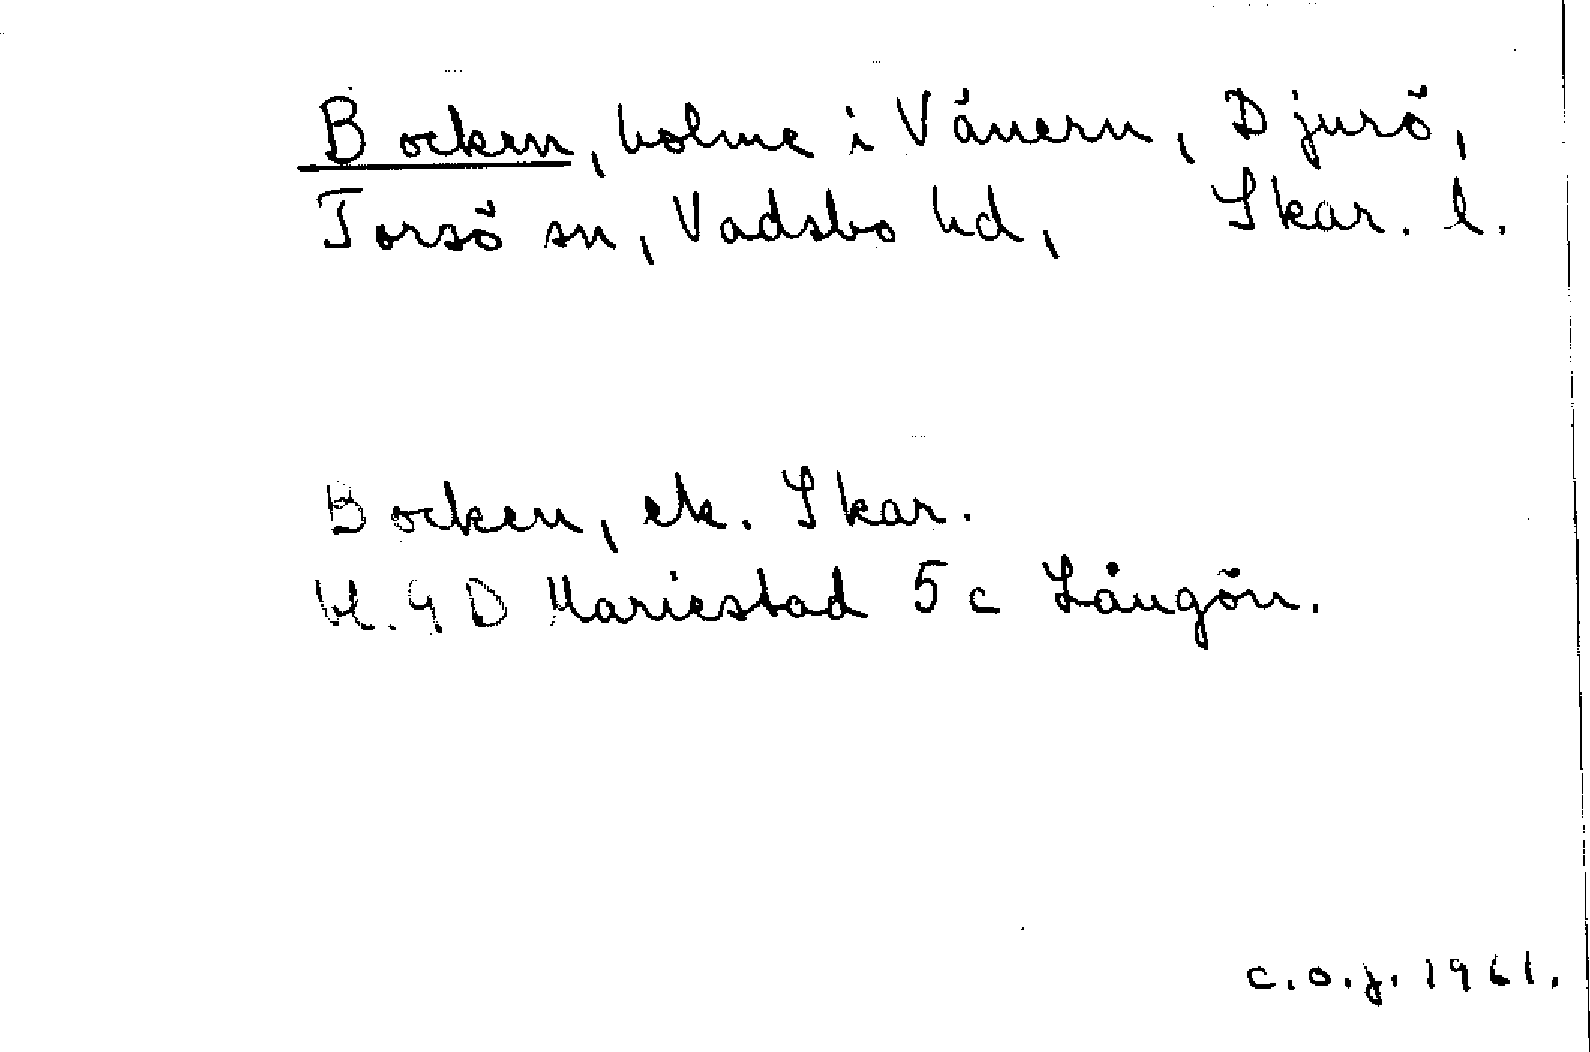 Bocken, holme i Vänern, Djurö,
Torsö sn, Vadsbo hd, Skar. l.
Bocken, ek. Skar.
bl. 9 D Mariestad 5 c Långön.
c.o.j. 1961.